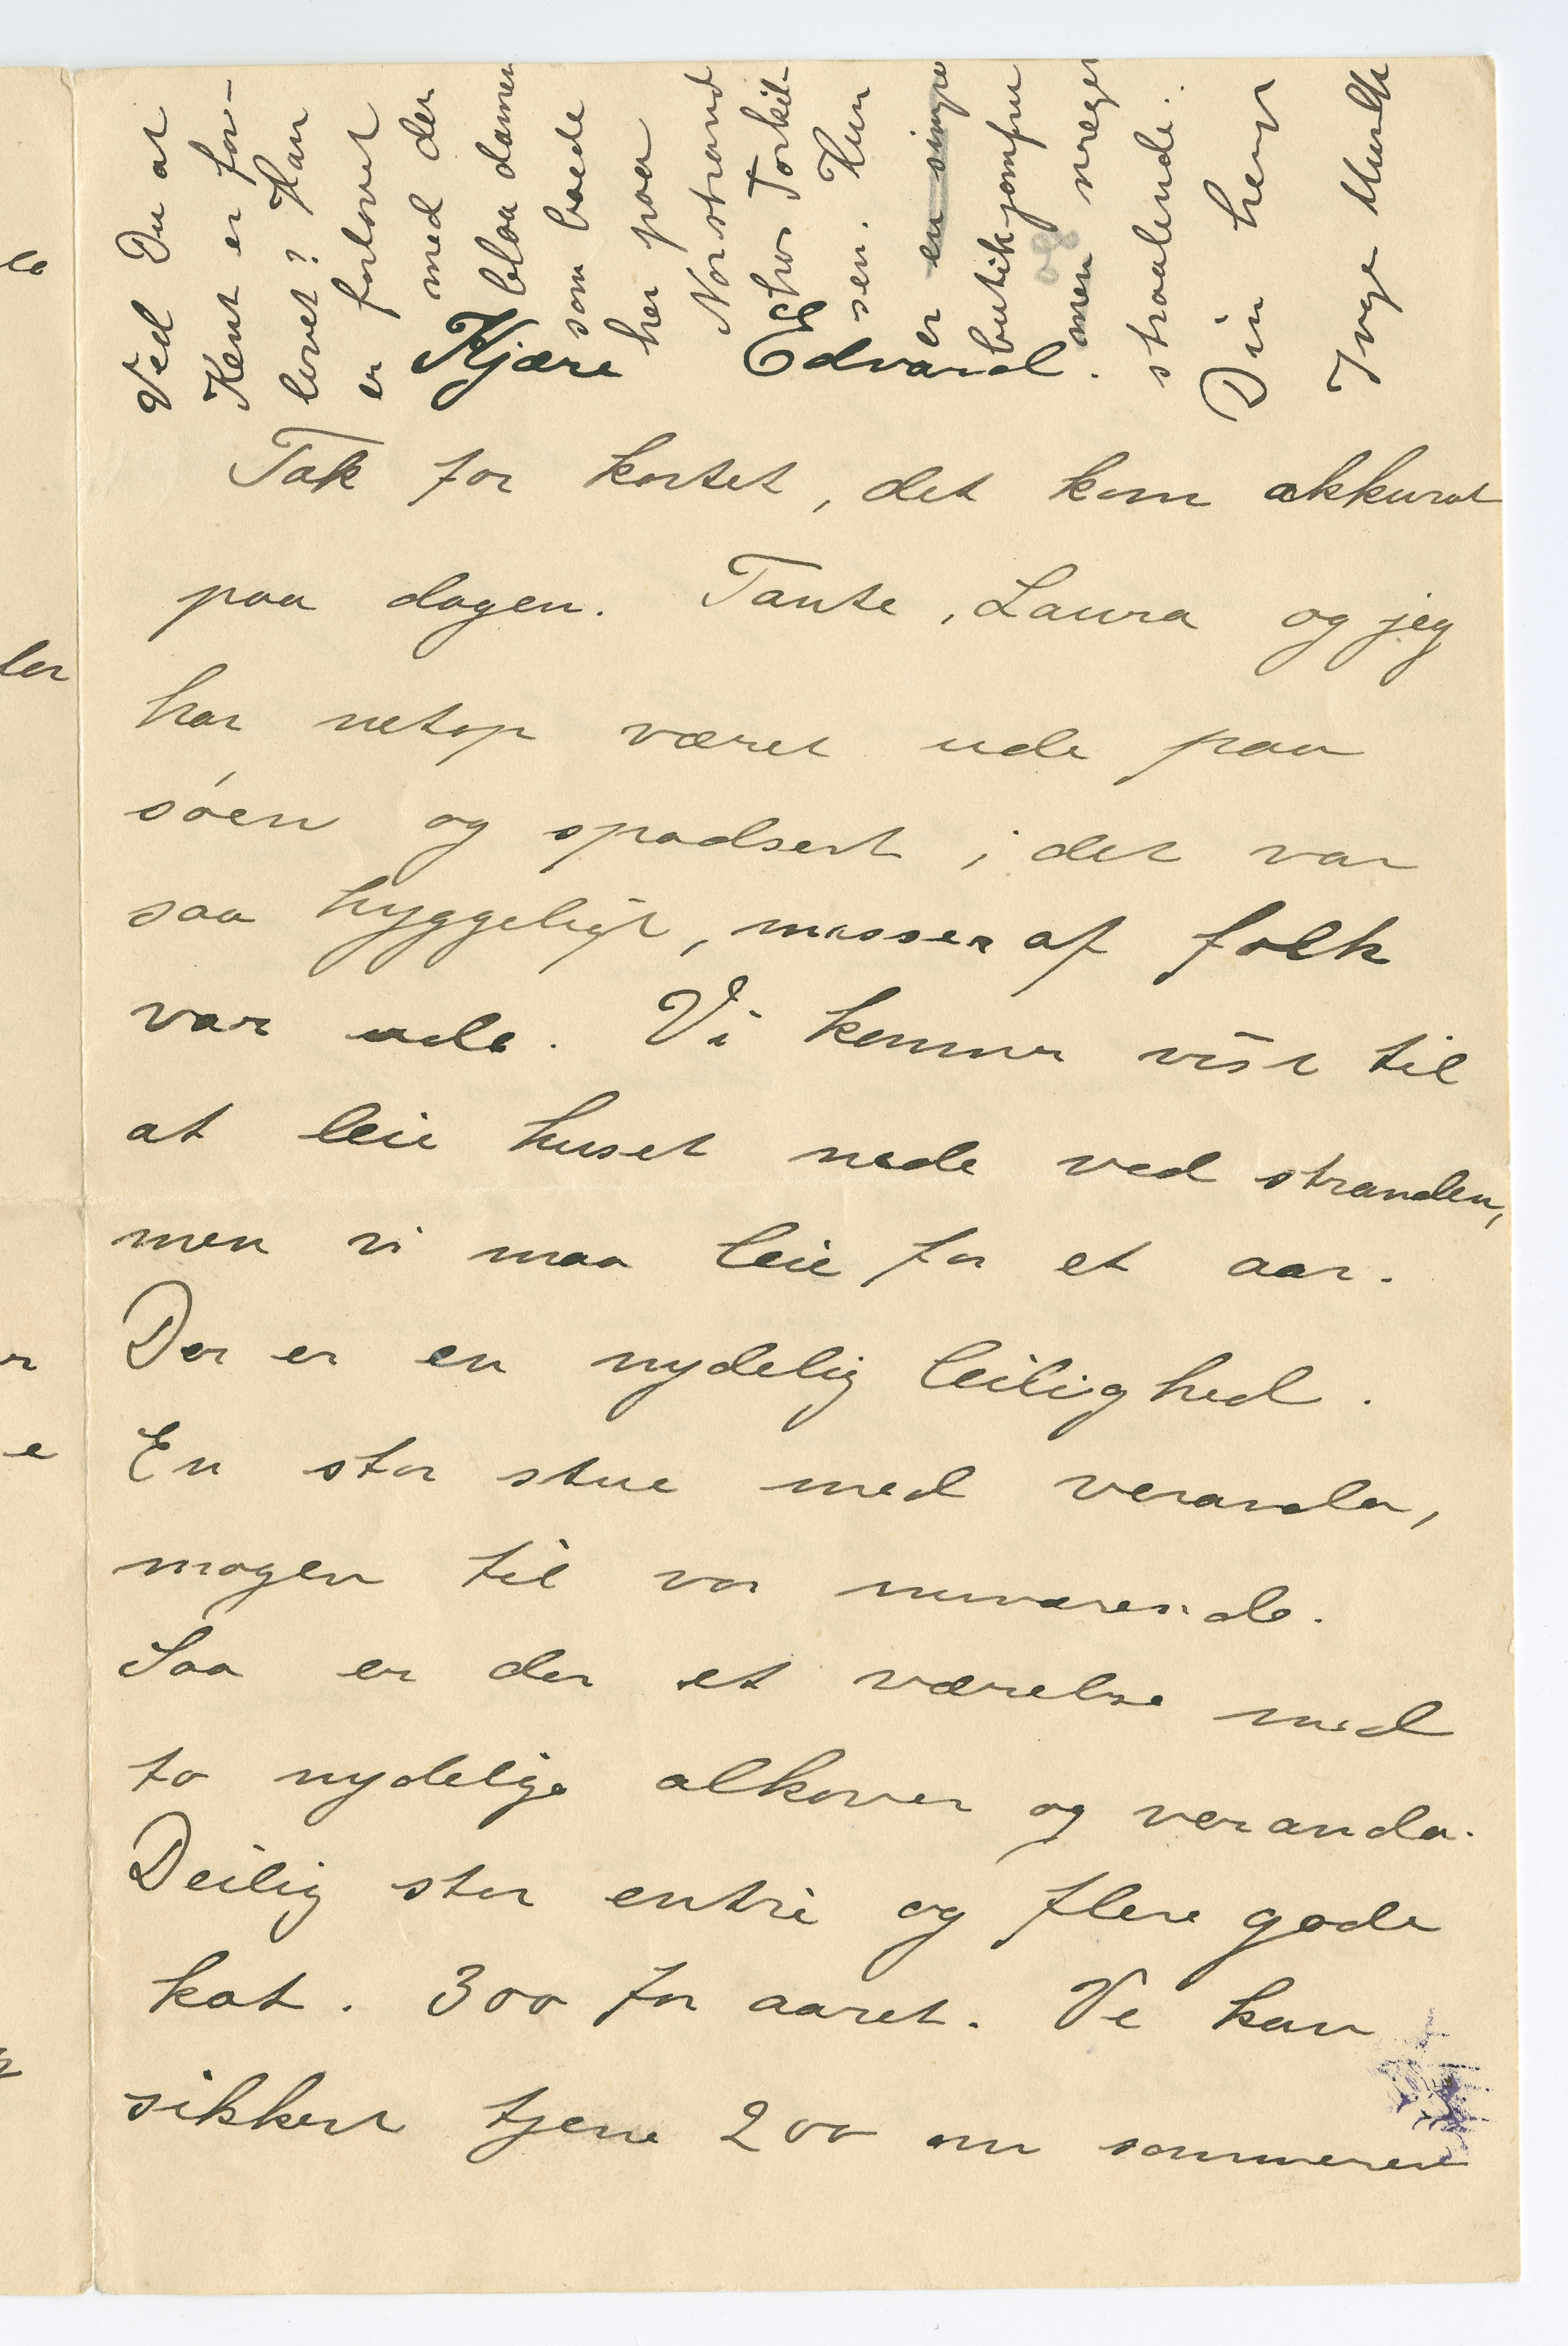 Kjære Edvard.
Tak for kortet, det kom akkurat
paa dagen. Tante, Laura og jeg
har netop været ude paa
søen og spadsert; det var
saa hyggeligt, masser af folk
var ude. Vi kommer vist til
at leie huset nede ved stranden,
men vi maa leie for et aar.
Der er en nydelig leilighed.
En stor stue med veranda,
magen til vor nuværende.
Saa er der et værelse med
to nydelige alkover og veranda.
Deilig stor entré og flere gode
kot. 300 for aaret. Vi kan
sikkert tjene 200 om sommeren
Ved Du at
Kent er for-
lovet? Han
er forlovet
med den
blaa damen
som boede
her paa
Norstrand
hos Torkil-
sen. Hun
er en simpel
butikjomfru
men meget
straalende.
Din heng
Inge Munch
la
ler
r
e